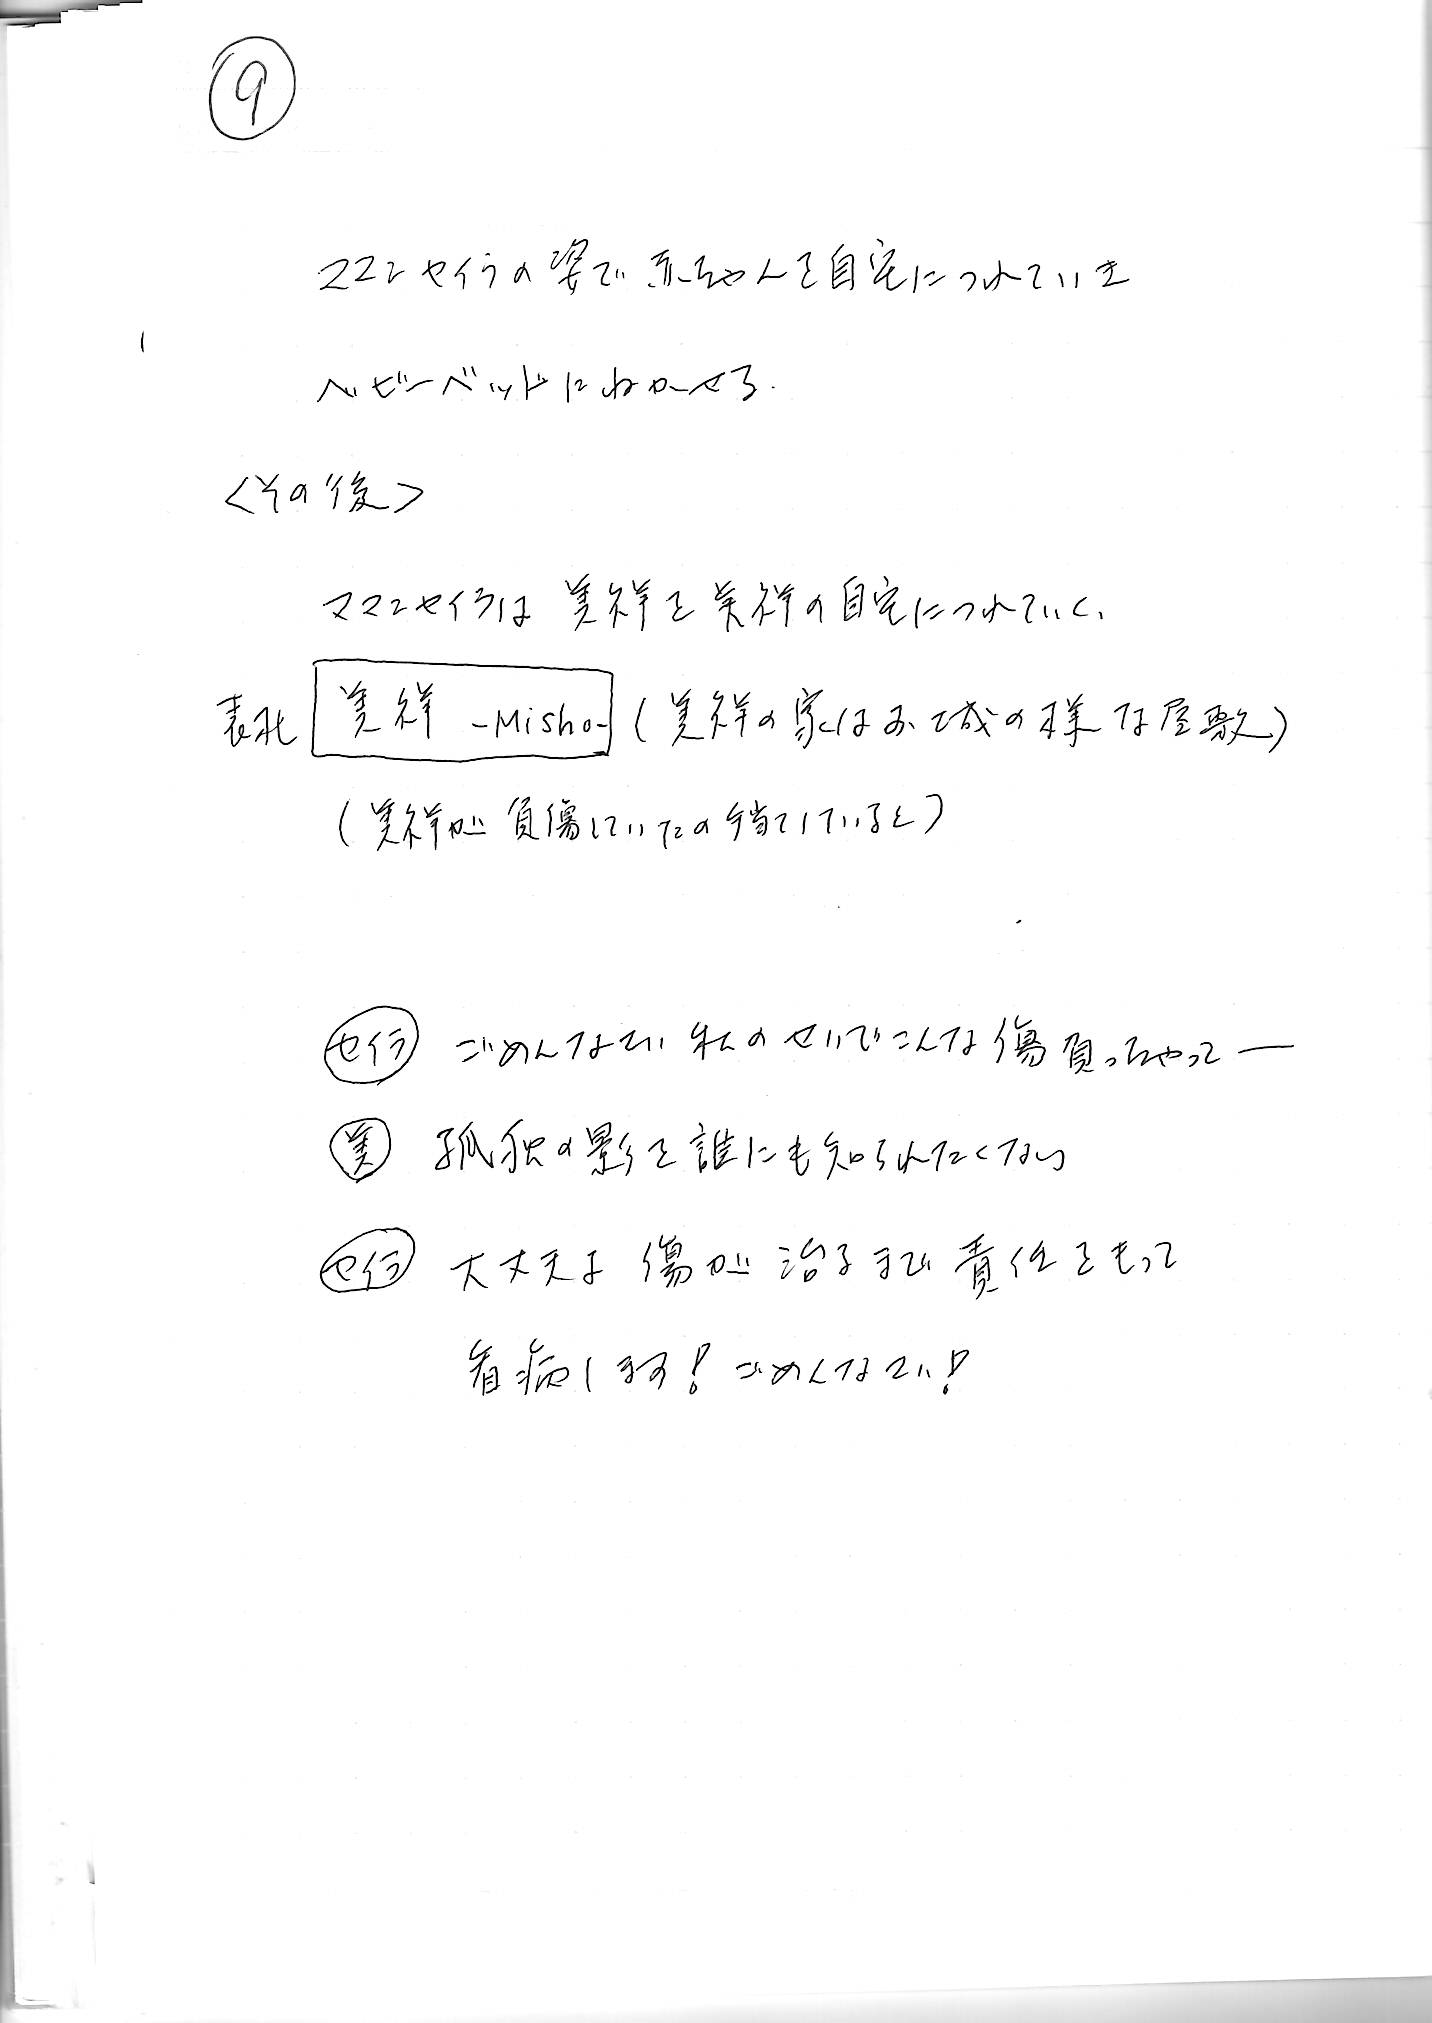 ⑨
ママンセイラの姿で赤ちゃんを自宅につれていき
ベビーベッドにねかせる.
<その後>
ママンセイラは美祥を美祥の自宅につれていく.
表札 美祥 -Misho- (美祥の家はお城の様な屋敷)
(美祥が負傷していたの手当てしていると)
セイラ ごめんなさい 私のせいでこんな傷負っちゃって―
美 孤独の影を誰にも知られたくない
セイラ 大丈夫よ 傷が治るまで責任をもって
看病します! ごめんなさい!